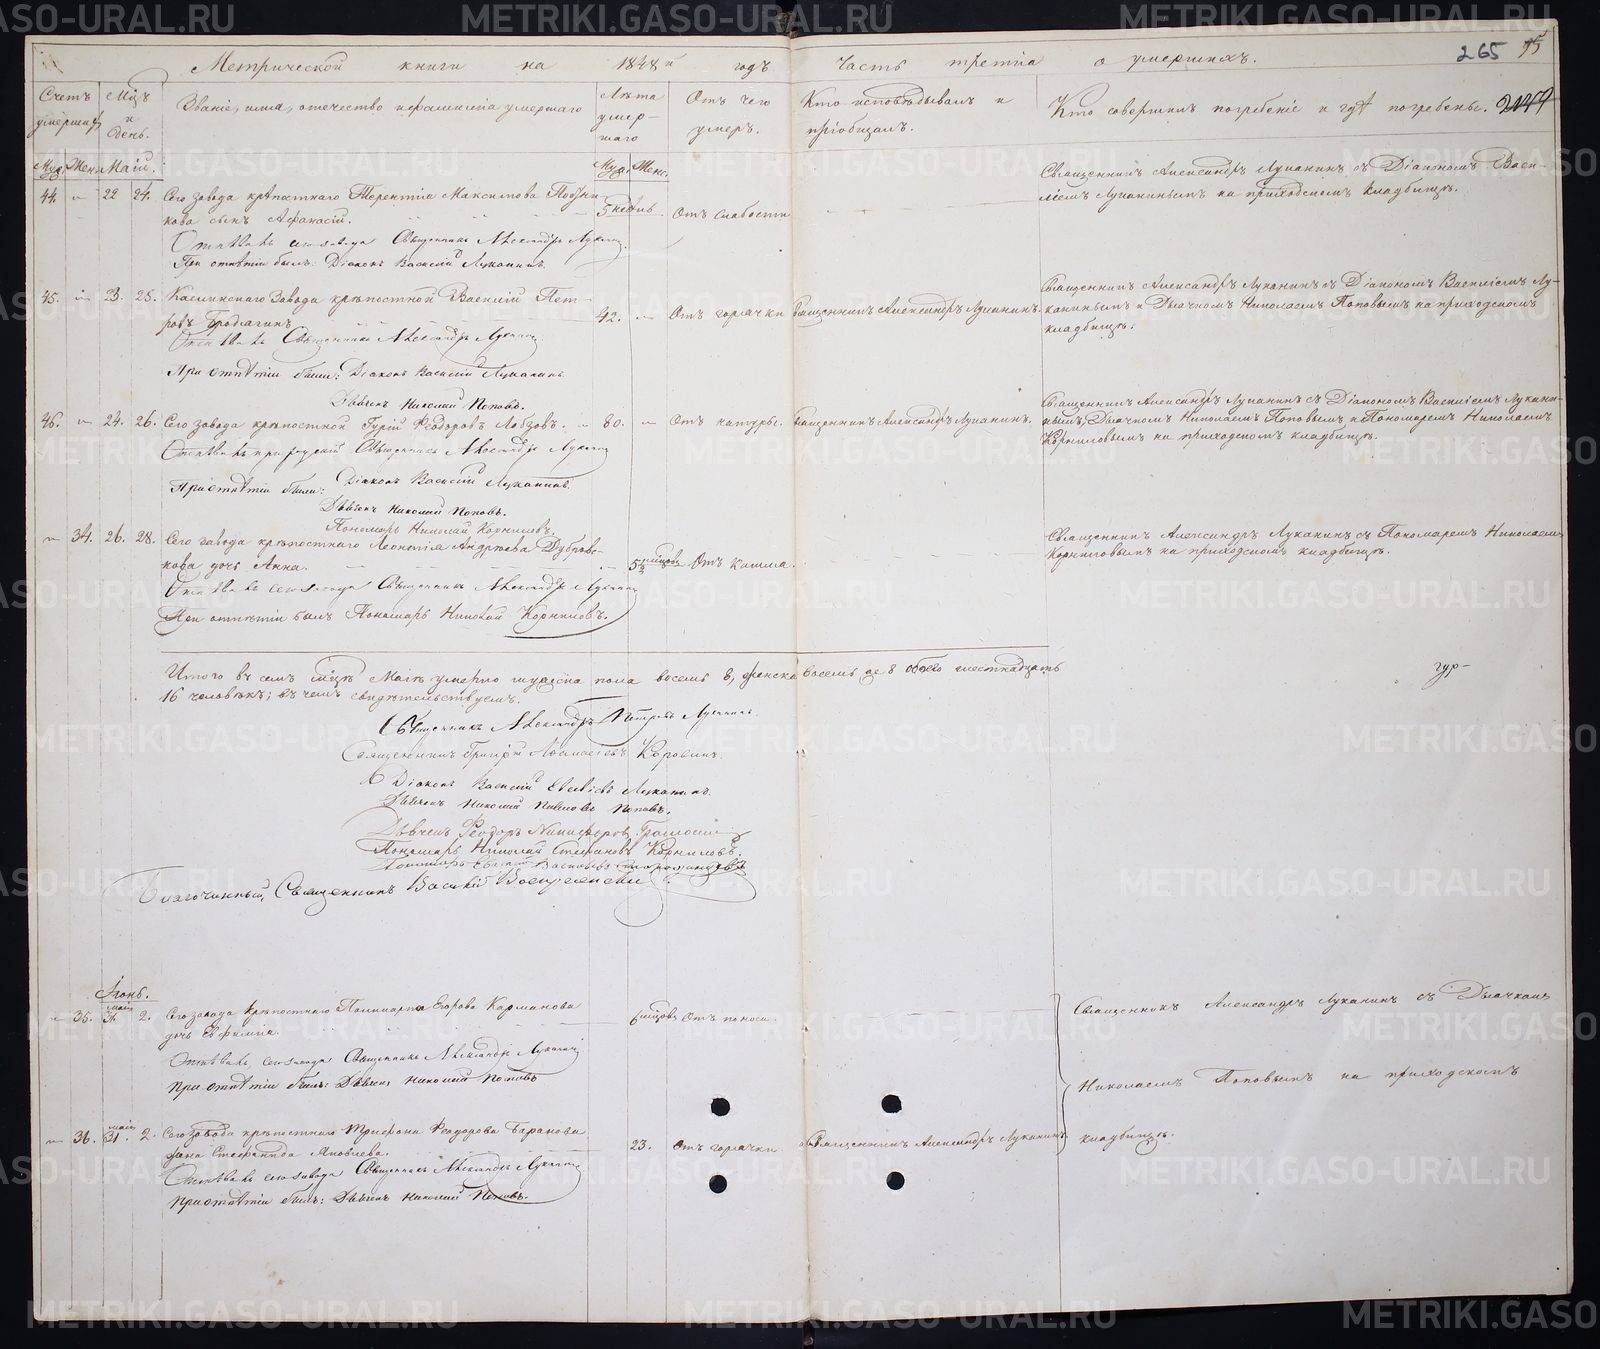 Метрической книги на 1848й годъ Часть третiя о умершихъ.
265
Счетъ умершихъ
Мцъ и день.
Званiе, имя, отечество и фамилiя умершаго
Лѣта умершаго
Отъ чего умеръ.
Кто исповѣдывалъ и прiобщалъ.
Кто совершилъ погребенiе и гдѣ погребены.
Муж. Жен. Маiй.
Муж. Жен.
44. 22 24. Сего завода крѣпостнаго Терентiя Максимова
кова сынъ Афанасiй. 5 недѣль Отъ слабости
Священникъ Александръ Луканинъ съ Дiакономъ Васи-
лiемъ Луканинымъ на приходскомъ кладбищѣ.
Отпѣвалъ сего завода Священникъ Александръ Луканинъ
При отпѣтiи былъ: Дiаконъ Василiй Луканинъ.
45. 23. 25. Каслинскаго Завода крѣпостной Василiй Пет-
ровъ 42. Отъ горячки Священникъ Александръ Луканинъ.
Священникъ Александръ Луканинъ съ Дiакономъ Василiемъ Лу-
канинымъ и Дьячкомъ Николаемъ Поповымъ на приходскомъ
кладбищѣ.
Отпѣвалъ Священникъ Александръ Луканинъ
При отпѣтiи были: Дiаконъ Василiй Луканинъ
Дьячекъ Николай Поповъ.
46. 24. 26. Сего завода крѣпостной Гурiй Ѳедоровъ Лобзовъ. 80. Отъ натуры. Священникъ Александръ Луканинъ.
Священникъ Александръ Луканинъ съ Дiакономъ Василiемъ Лукани-
нымъ, Дьячкомъ Николаемъ Поповымъ и Пономаремъ Николаемъ
Корниловымъ на приходскомъ кладбищѣ.
Священникъ Александръ Луканинъ
При отпѣтiи были: Дiаконъ Василiй Луканинъ.
Дьячекъ Николай Поповъ.
Пономарь Николай Корниловъ.
34. 26. 28. Сего завода крѣпостнаго Леонтiя Андреева Дубров-
кова дочь Анна. 5½ мѣсяцовъ Отъ кашля.
Священникъ Александръ Луканинъ съ Пономаремъ Николаемъ
Корниловымъ на приходскомъ кладбищѣ.
Отпѣвалъ сего завода Священникъ Александръ Луканинъ
При отпѣтiи былъ Пономарь Николай Корниловъ.
Итого въ семъ мцѣ Маiѣ умерло мужеска пола восемь 8, женска восемь же 8 обоего шестнадцать
16 человѣкъ; въ чемъ свидѣтельствуемъ.
Священникъ Александръ Петровъ Луканинъ.
Священникъ Григорiй Коровинъ.
Дiаконъ Василiй Луканинъ.
Дьячекъ Николай Павловъ Поповъ.
Дьячекъ Ѳеодоръ Никифоровъ
Пономарь Николай Стефановъ Корниловъ.
Пономарь
Благочинный, Священникъ Василiй
Iюнь.
35. маiя 31. 2. Сего завода крѣпостнаго Егорова Карманова
дочь Евфимiя. 6 мѣсяцовъ Отъ поноса.
Священникъ Александръ Луканинъ съ Дьячкомъ
Отпѣвалъ сего завода Священникъ Александръ Луканинъ
При отпѣтiи былъ: Дьячекъ Николай Поповъ
Николаемъ Поповымъ на приходскомъ
36. маiя 31. 2. Сего завода крѣпостнаго Трифона Ѳеодорова Баранова
жена Стефанида Яковлева. 23. Отъ горячки Священникъ Александръ Луканинъ
кладбищѣ.
Отпѣвалъ сего завода Священникъ Александръ Луканинъ
При отпѣтiи былъ: Дьячекъ Николай Поповъ.
METRIKI.GASO-URAL.RU